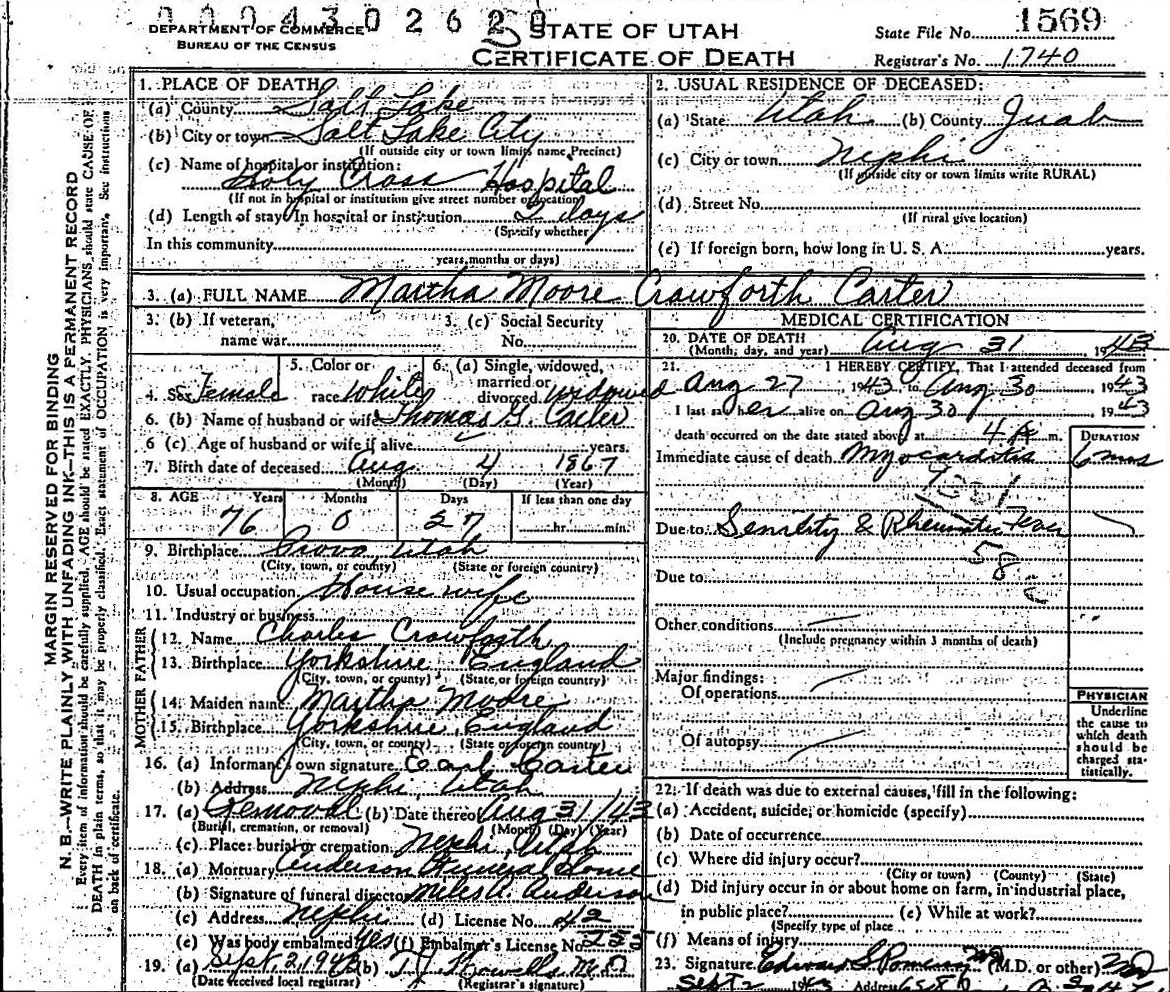 000430262 0
DEPARTMENT OF COMMERCE
BUREAU OF THE CENSUS
STATE OF UTAH
CERTIFICATE OF DEATH
State File No. 1569
Registrar's No. 1740
MARGIN RESERVED FOR BINDING
N. B.—WRITE PLAINLY WITH UNFADING INK—THIS IS A PERMANENT RECORD
Every item of information should be carefully supplied. AGE should be stated EXACTLY. PHYSICIANS should state CAUSE OF
DEATH in plain terms, so that it may be properly classified. Exact statement of OCCUPATION is very important. See instructions
on back of certificate.
1. PLACE OF DEATH
(a) County Salt Lake
(b) City or town Salt Lake City
(If outside city or town limits name Precinct)
(c) Name of hospital or institution:
Holy Cross Hospital
(If not in hospital or institution give street number or location)
(d) Length of stay In hospital or institution 2 days
(Specify whether
In this community
years, months or days)
2. USUAL RESIDENCE OF DECEASED:
(a) State Utah (b) County Juab
(c) City or town Nephi
(If outside city or town limits write RURAL)
(d) Street No.
(If rural give location)
(e) If foreign born, how long in U. S. A. years.
3. (a) FULL NAME Martha Moore Crawforth Carter
3. (b) If veteran,
name war
3. (c) Social Security
No.
4. Sex Female
5. Color or
race White
6. (a) Single, widowed,
married or
divorced widowed
6. (b) Name of husband or wife Thomas G. Carter
6 (c) Age of husband or wife if alive years.
7. Birth date of deceased Aug 4 1867
(Month) (Day) (Year)
8. AGE Years Months Days If less than one day
76 0 27 hr. min.
9. Birthplace Provo, Utah
(City, town, or county) (State or foreign country)
10. Usual occupation House wife
11. Industry or business
FATHER
12. Name Charles Crawforth
13. Birthplace Yorkshire England
(City, town, or county) (State or foreign country)
MOTHER
14. Maiden name Martha Moore
15. Birthplace Yorkshire, England
(City, town, or county) (State or foreign country)
16. (a) Informant's own signature Earl Carter
(b) Address Nephi, Utah
17. (a) Removal (b) Date thereof Aug 31/43
(Burial, cremation, or removal) (Month) (Day) (Year)
(c) Place: burial or cremation Nephi, Utah
18. (a) Mortuary Anderson Funeral Home
(b) Signature of funeral director Miles A. Anderson
(c) Address Nephi (d) License No. 42
(e) Was body embalmed Yes (f) Embalmer's License No. 255
19. (a) Sept. 2 1943 (b) T. J. Howells M.D
(Date received local registrar) (Registrar's signature)
MEDICAL CERTIFICATION
20. DATE OF DEATH
(Month, day, and year) Aug 31, 1943
21. I HEREBY CERTIFY, That I attended deceased from
Aug 27, 1943 to Aug 30, 1943
I last saw her alive on Aug 30, 1943
death occurred on the date stated above at 4 A m.
DURATION
Immediate cause of death Myocarditis 6 mos
Due to Senility & Rheumatic Fever
58
Due to
Other conditions
(Include pregnancy within 3 months of death)
Major findings:
Of operations
Of autopsy
PHYSICIAN
Underline
the cause to
which death
should be
charged sta-
tistically.
22. If death was due to external causes, fill in the following:
(a) Accident, suicide, or homicide (specify)
(b) Date of occurrence
(c) Where did injury occur?
(City or town) (County) (State)
(d) Did injury occur in or about home on farm, in industrial place,
in public place? (e) While at work?
(Specify type of place
(f) Means of injury
23. Signature Edward S Pomeroy MD (M.D. or other) MD
Sept 2 1943 Address